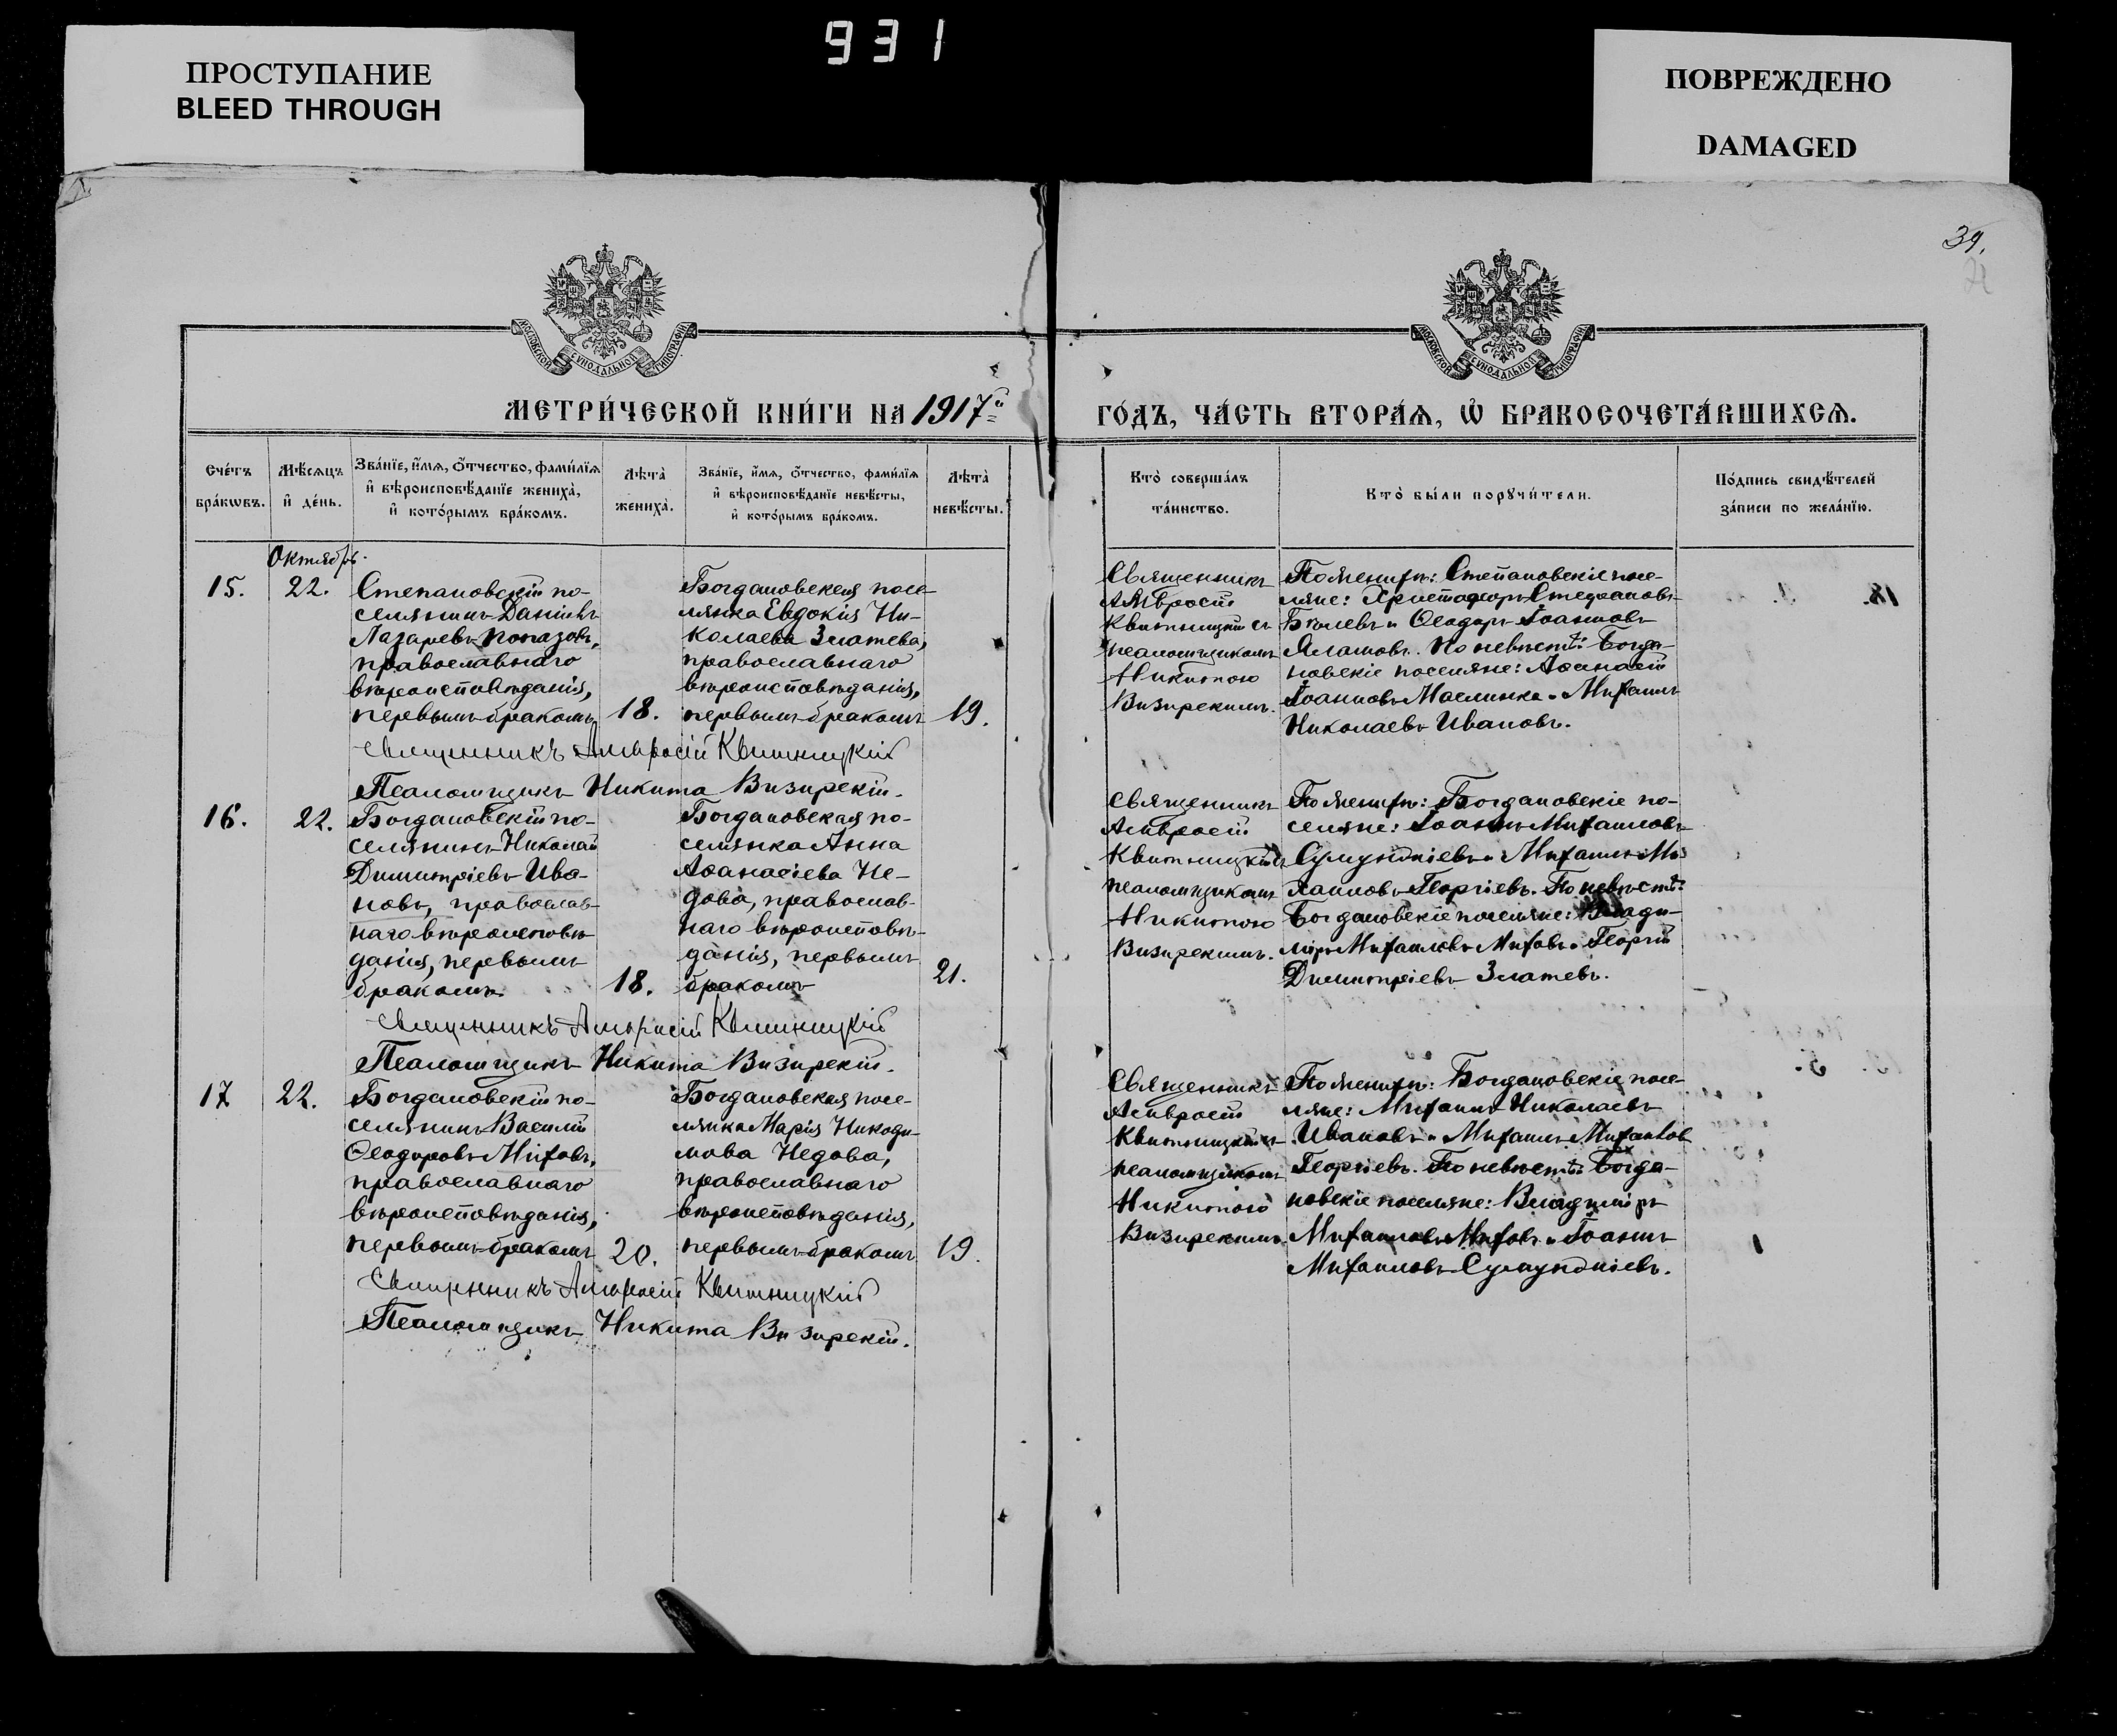 931
ПРОСТУПАНИЕ
BLEED THROUGH
ПОВРЕЖДЕНО
DAMAGED
39.
МОСКОВСКОЙ СѴНОДАЛЬНОЙ ТИПОГРАФІИ
МОСКОВСКОЙ СѴНОДАЛЬНОЙ ТИПОГРАФІИ
МЕТРИ́ЧЕСКОЙ КНИ́ГИ НА 1917й
ГО́ДЪ, ЧА́СТЬ ВТОРА́Ѧ, Ѽ БРАКОСОЧЕТА́ВШИХСѦ.
Сче́тъ
бра́кѡвъ.
Мѣ́сѧцъ
и҆ де́нь.
Зва́нїе, и҆́мѧ, ѻ҆́тчество, фами́лїѧ
и҆ вѣроисповѣ́данїе жениха̀,
и҆ кото́рымъ бра́комъ.
Лѣта̀
жениха̀.
Зва́нїе, и҆́мѧ, ѻ҆́тчество, фами́лїѧ
и҆ вѣроисповѣ́данїе невѣ́сты,
и҆ кото́рымъ бра́комъ.
Лѣта̀
невѣ́сты.
Кто̀ соверша́лъ
та́инство.
Кто̀ бы́ли порꙋчи́тели.
По́дпись свидѣ́телей
за́писи по жела́нїю.
Октябрь.
15.
22.
Степановскій по-
селянинъ Даніилъ
Лазаревъ Попазовъ,
православнаго
вѣроисповѣданія,
первымъ бракомъ
18.
Богдановская посе-
лянка Евдокія Ни-
колаева Златева,
православнаго
вѣроисповѣданія,
первымъ бракомъ
19.
Священникъ
Амвросій
Квитницкій съ
псаломщикомъ
Никитою
Визирскимъ.
По женихѣ: Степановскіе посе-
ляне: Христофоръ Стефановъ
и Ѳеодоръ Іоанновъ
По невѣстѣ: Богда-
новскіе поселяне: Аѳанасій
Іоанновъ Маслинка и Михаилъ
Николаевъ Ивановъ.
Священникъ Амвросій Квитницкій
Псаломщикъ Никита Визирскій.
16.
22.
Богдановскій по-
селянинъ Николай
Димитріевъ Ива-
новъ, православ-
наго вѣроисповѣ-
данія, первымъ
бракомъ.
18.
Богдановская по-
селянка Анна
Аѳанасіева Не-
дова, православ-
наго вѣроисповѣ-
данія, первымъ
бракомъ
21.
Священникъ
Амвросій
Квитницкій съ
псаломщикомъ
Никитою
Визирскимъ.
По женихѣ: Богдановскіе по-
селяне: Іоаннъ Михаиловъ
Сумунджіевъ и Михаилъ Ми-
хаиловъ Георгіевъ. По невѣстѣ:
Богдановскіе поселяне: Влади-
міръ Михаиловъ Миховъ и Георгій
Димитріевъ Златевъ.
Священникъ Амвросій Квитницкій
Псаломщикъ Никита Визирскій.
17
22.
Богдановскій по-
селянинъ Василій
Ѳеодоровъ Миховъ,
православнаго
вѣроисповѣданія,
первымъ бракомъ
20.
Богдановская посе-
лянка Марія Никоди-
мова Недова,
православнаго
вѣроисповѣданія,
первымъ бракомъ
19.
Священникъ
Амвросій
Квитницкій съ
псаломщикомъ
Никитою
Визирскимъ
По женихѣ: Богдановскіе посе-
ляне: Михаилъ Николаевъ
Ивановъ и Михаилъ Михаиловъ
Георгіевъ. По невѣстѣ: Богда-
новскіе поселяне: Владиміръ
Михаиловъ Миховъ и Іоаннъ
Михаиловъ Сумунджіевъ.
Священникъ Амвросій Квитницкій
Псаломщикъ Никита Визирскій.